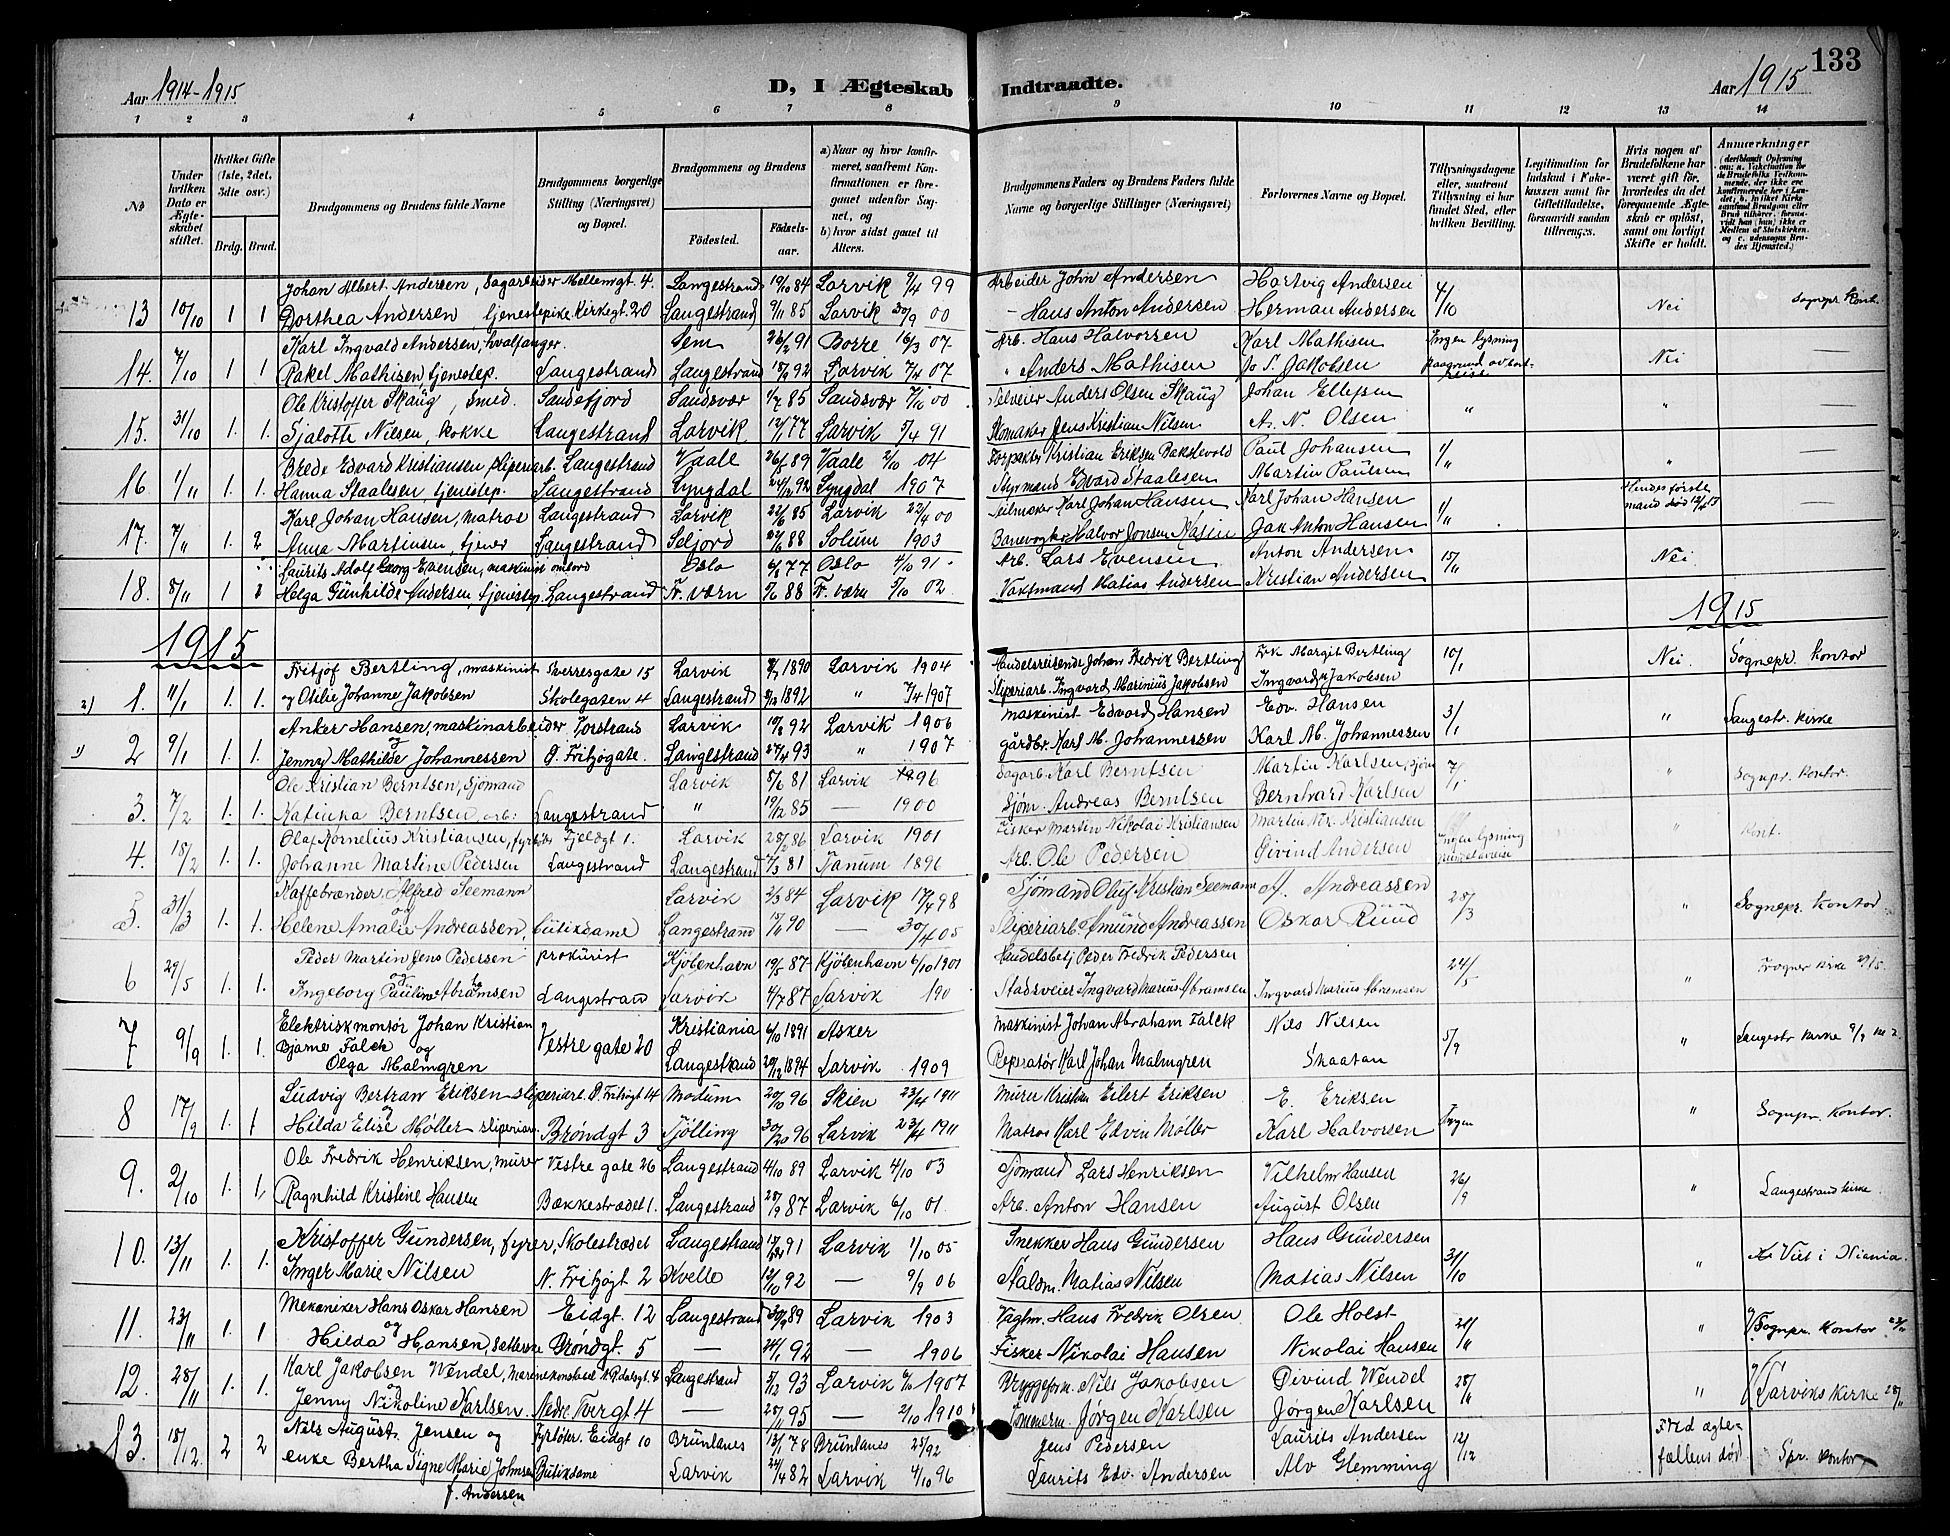 133
Aar 1914-1915
D, I Ægteskab Indtraadte.
Aar 1915
1 2 3 4 5 6 7 8 9 10 11 12 13 14
No
Under hvilken Dato er Ægteskabet stiftet.
Hvilket Gifte (1ste, 2det, 3die osv.)
Brdg. Brud.
Brudgommens og Brudens fulde Navne
Brudgommens borgerlige Stilling (Næringsvei) og Bopæl.
Brudgommens og Brudens
Fødested.
Fødselsaar.
a) Naar og hvor konfirmeret, saafremt Konfirmationen er foregaaet udenfor Sognet, og
b) hvor sidst gaaet til Alters.
Brudgommens Faders og Brudens Faders fulde Navne og borgerlige Stillinger (Næringsvei)
Forlovernes Navne og Bopæl.
Tillysningsdagene eller, saafremt Tillysning ei har fundet Sted, efter hvilken Bevilling.
Legitimation for Indskud i Enkekassen samt for Giftetilladelse, forsaavidt saadan tiltrænges.
Hvis nogen af Brudefolkene har været gift før, hvorledes da det foregaaende Ægteskab er opløst, samt om lovligt Skifte er holdt.
Anmærkninger
Johan Albert Andersen, Sagarbeider Mellemgt. 4. Langestrand 19/10 84 Larvik 9/4 99 Arbeider John Andersen Hartvig Andersen 4/10
13 10/10 1 1 Dorthea Andersen, tjenestepike Kirkegt. 20 Langestrand 9/11 85 Larvik 30/9 00 Hans Anton Andersen Herman Andersen Nei Sognepr. Kont.
Karl Ingvald Andersen, hvalfanger. Sem 26/2 91 Borre 16/3 07 Arb. Hans Halvorsen Karl Mathisen Ingen lysning
14. 7/10 1 1 Rakel Mathisen, tjenestep. Langestrand Langestrand 18/9 92 Larvik 7/4 07 " Anders Mathisen Jo S. Jakobsen paagrund av bortreise Nei —
Ole Kristoffer Skaug, Smed. Sandefjord Sandsvær 1/7 85 Sandsvær 7/10 00 Anders Olsen Skaug Johan Ellefsen
15. 31/10 1. 1. Sjalotte Nilsen, kokke Langestrand Larvik 12/1 77 Larvik 5/4 91 Skomaker Jens Kristian Nilsen A. N. Olsen " " —
Brede Edvard Kristiansen, sliperiarb. Langestrand Vaale 26/8 89 Vaale 2/10 04 Forpakter Kristian Eriksen Bakskevold Paul Johansen 1/11
16 1/11 1. 1. Hanna Staalesen, tjenestep. Langestrand Lyngdal 24/12 92 Lyngdal 1907 Styrmand Edvard Staalesen Martin Paulsen " —
Karl Johan Hansen, matros Langestrand Larvik 22/6 85 Larvik 22/4 00 Seilmaker Karl Johan Hansen Karl Johan Hansen 1/11 Hendes første mand død
17. 7/11 1. 2 Anna Martinsen, tjener Langestrand Seljord 88 Solum 1903 Banevogter Halvor Jonsen Jan Anton Hansen
Laurits Adolf Georg Evensen, maskinist ombord Oslo 6/8 77 Oslo 4/10 91 Arb. Lars Evensen Anton Andersen 15/11 Nei. —
18. 8/11 1 2 Helga Gunhilde Andersen, tjenestep. Langestrand Fr. værn 88 Fr. værn 5/10 02. Vaktmand Matias Andersen Kristian Andersen
1915 1915
Fritjof Bertling, maskinist Sverresgate 15 Larvik 1890 Larvik 1904 Handelsreisende Johan Fredrik Bertling Frk Margit Bertling 10/1 Nei. Sognepr. Kontor
2) 1. 11/1 1. 1. og Otilie Johanne Jakobsen Skolegaten 4 Langestrand 1892 " 7/4 1907 Sliperiarb. Ingvard Marinius Jakobsen Ingvard Jakobsen
Anker Hansen, maskinarbeider Torstrand Larvik 10/8 92 Larvik 1906 maskinist Edvard Hansen Edv. Hansen 3/1 " Langestr. Kirke
1) 2 9/1 1. 1. og Jenny Mathilde Johannessen Ø. Fritzøgate. Langestrand 27/4 93 " 1907 gårdbr. Karl M. Johannessen Karl M. Johannessen
Ole Kristian Berntsen, Sjömand Larvik 5/6 81 Larvik 96 Sagarb. Karl Berntsen Martin Karlsen, sjøm 7/1 " Sognepr. kontor.
3. 7/2 1. 1. Katinka Berntsen, arb. Langestrand " 19/12 85 — 1900 Sjøm. Andreas Berntsen Bernhard Karlsen
Olaf Kornelius Kristiansen, fyrbøter Fjeldgt 1. Larvik 28/2 86 Larvik 1901 Fisker Martin Nikolai Kristiansen Martin Nik. Kristiansen Ingen lysning " Kont.
4. 18/2 1. 1. Johanne Martine Pedersen Langestrand Langestrand 7/3 81 Tanum 1896 Arb. Ole Pedersen Øivind Andersen
Kaffebrænder Alfred Seemann Larvik 2/3 84 Larvik 17/4 98 Sjömand Oluf Kristian Seemann A. Andreassen 28/3
5. 31/3 1. 1. og Helene Amalie Andreassen, butikdame Langestrand 17/11 90 — 30/4 05 Sliperiarb. Amund Andreassen Oskar Ruud " Sognepr. Kontor
Peder Martin Jens Pedersen prokurist Kjöbenhavn 19/5 87 Kjöbenhavn 6/10 1901 Handelsbetj Peder Fredrik Pedersen 24/5
6 29/5 1. 1. og Ingeborg Pauline Abramsen Langestrand Larvik 4/7 87 Larvik 190 Stadsveier Ingvard Marius Abramsen Ingvard Marius Abramsen " Frogner kirke 29/5.
Elektriskmontör Johan Kristian Kristiania 6/10 1891 Asker maskinist Johan Abraham Falck Nils Nilsen 5/9 Langestr Kirke 9/9
7 9/9 1. 1. Bjarne Falck og Olga Malmgren Vestre gate 20 Langestrand 20/12 1894 Larvik 1909 Reperatör Karl Johan Malmgren Skaatan "
Ludvig Bertran Eriksen sliperiarb. Ø. Fritzøgt 14 Modum 20/10 96 Skien 23/4 1911 Murer Kristian Eilert Eriksen E. Eriksen
8 17/9 1. 1 og Hilda Elise Møller sliperiarb. Brøndgt 3 Tjølling 30/10 96 Larvik 23/4 1911 Matros Karl Edvin Møller Karl Halvorsen Ingen " Sognpr. Kontor.
Ole Fredrik Henriksen, murer Vestre gate 26 Langestrand 4/10 89 Larvik 4/10 03 Sjömand Lars Henriksen Vilhelm Hansen 26/9
9. 2/10 1. 1. Ragnhild Kristine Hansen Bakkestrædet 1. Langestrand 28/9 87 Larvik 6/10 01. Arb. Anton Hansen August Olsen " Langestrand kirke.
Kristoffer Gundersen, fyrer, Skolestrædet Langestrand 91 Larvik 1/10 05 Snekker Hans Gundersen Hans Gundersen 31/10 Viet i Kiania.
10. 13/11 1. 1. Inger Marie Nilsen N. Fritzøgt 2 Kvelle 12/10 92 — 9/9 06 Staldm. Matias Nilsen Matias Nilsen "
Mekaniker Hans Oskar Hansen Eidgt. 12 Langestrand 30/9 89 Larvik 1903 Vagtm. Hans Fredrik Olsen Ole Holst 21/11
11. 23/11 1. 1 og Hilda Hansen, Brøndgt. 5 — 24/1 92 — 1906 Fisker Nikolai Hansen Nikolai Hansen " Sognpr. Kontor 23/11
Karl Jakobsen Wendel, Langestrand 5/12 93 Larvik 6/10 1907 Bryggeform. Nils Jakobsen Øivind Wendel 28/11
12. 28/11 1. 1. og Jenny Nikoline Karlsen. Nedre Tvergt 4 — 28/11 95 — 2/10 1910 Tömmerm. Jørgen Karlsen Jørgen Karlsen " Larviks Kirke 28/11
Nils August Jensen og fyrböter. Eidgt 10 Brunlanes 13/1 78 Brunlanes 25/92 Jens Pedersen Laurits Andersen 12/12 ved ægtefællens död
13. 18/12 2 2 enke Bertha Signe Marie Johnsen Butikdame Larvik 24/4 82 Larvik 4/10 96 Laurits Edv. Andersen Alv Glemming Spr. kontor
f. Andersen